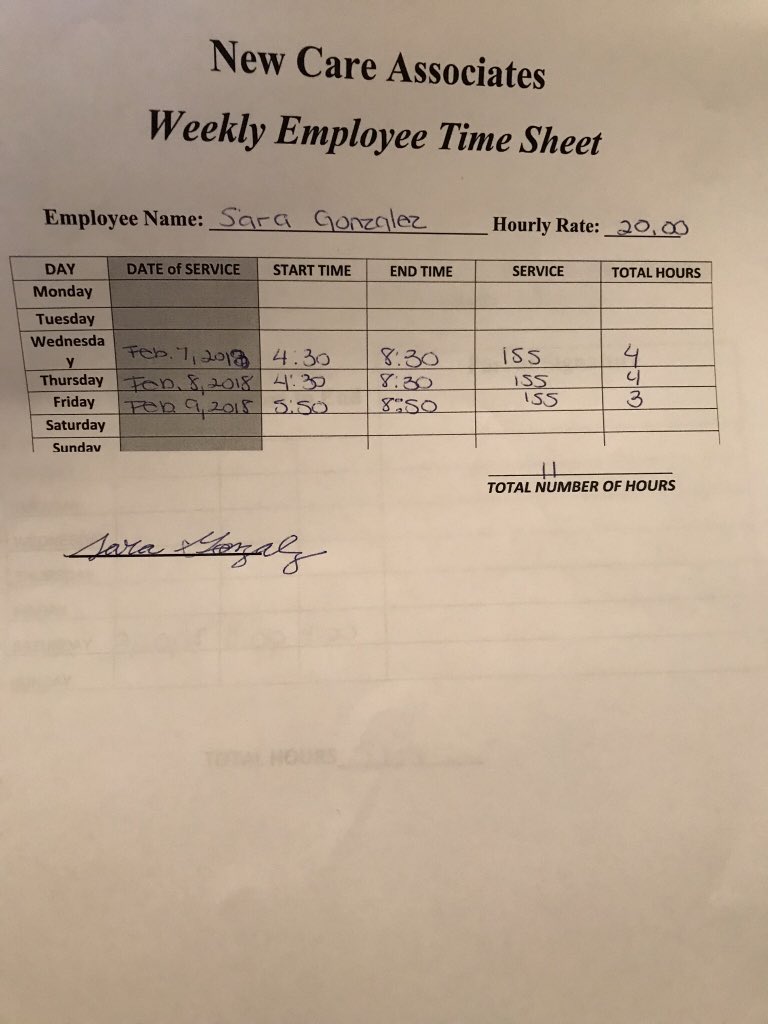 New Care Associates
Weekly Employee Time Sheet
Employee Name: Sara Gonzalez Hourly Rate: 20.00
DAY DATE of SERVICE START TIME END TIME SERVICE TOTAL HOURS
Monday
Tuesday
Wednesday Feb. 7, 2018 4:30 8:30 155 4
Thursday Feb. 8, 2018 4:30 8:30 155 4
Friday Feb 9, 2018 5:50 8:50 155 3
Saturday
Sunday
11
TOTAL NUMBER OF HOURS
Sara Gonzalz
TOTAL HOURS